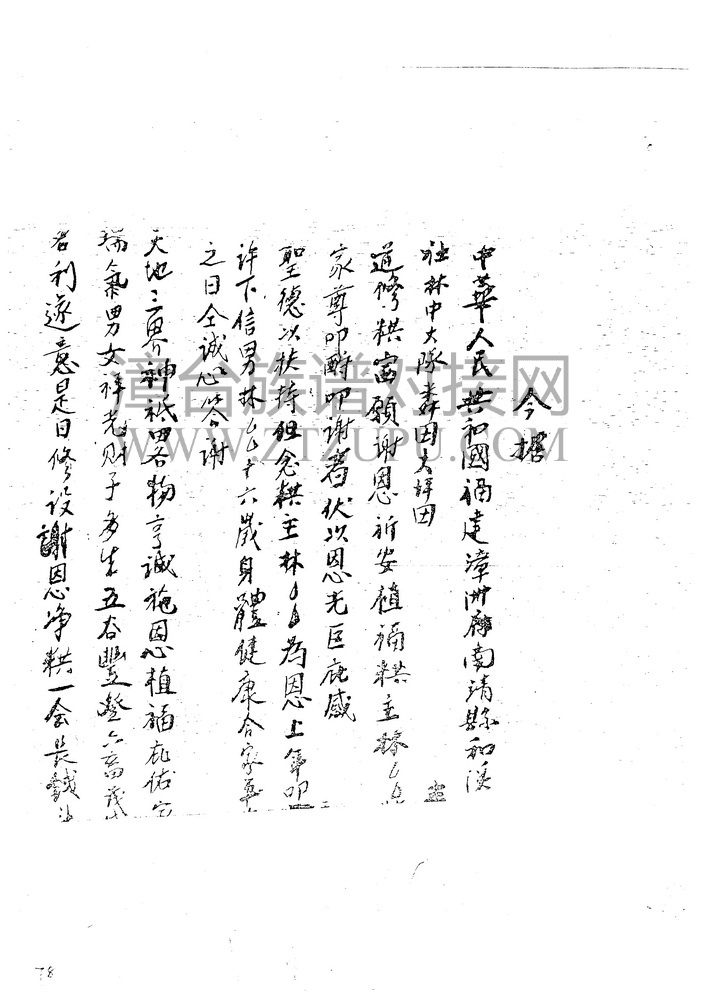 今據
中華人民共和國福建漳洲府南靖縣和溪
社林中大隊 因 因
道修 富願謝恩祈安植福 主林
家尊叩酧叩謝者伏以恩光巨庇感
聖德以扶持但念 主林厶厶為恩上年叩
許下信男林厶厶十六歲身體健康合家
之日全誠心答謝
天地三界神祇男各物亨誠施恩植福庇佑
瑞氣男女祥光財子多生五谷豐登六畜茂
名利遂意是日修設謝恩净 一会長
漳台族谱对接网
WWW.ZTZUPU.COM
78